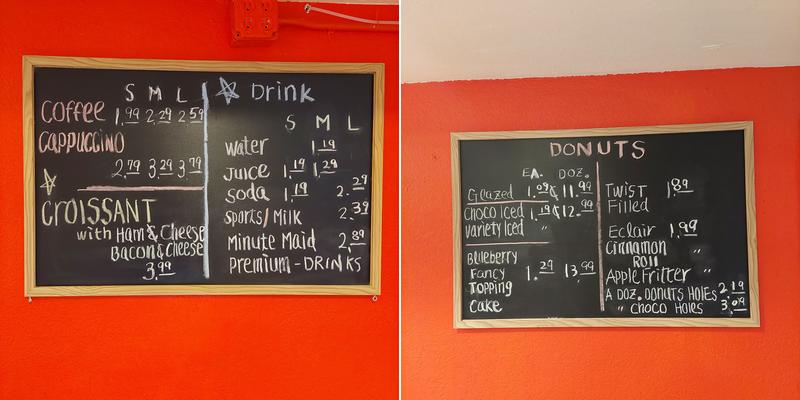 S M L
Coffee 1.99 2.29 2.59
Cappuccino
2.79 3.29 3.79
Croissant
with Ham & Cheese
Bacon & Cheese
3.99
Drink
S M L
water 1.19
Juice 1.19 1.29
soda 1.19 2.29
Sports/Milk 2.39
Minute Maid 2.89
Premium-DRINKS
DONUTS
EA. DOZ.
Glazed 1.09 & 11.99
Choco Iced 1.19 & 12.99
Variety Iced "
Blueberry
Fancy 1.29 13.99
Topping
Cake
Twist 1.89
Filled
Eclair 1.99
Cinnamon
Roll "
Apple Fritter "
A DOZ. DONUTS HOLES 2.19
" CHOCO HOLES 3.09